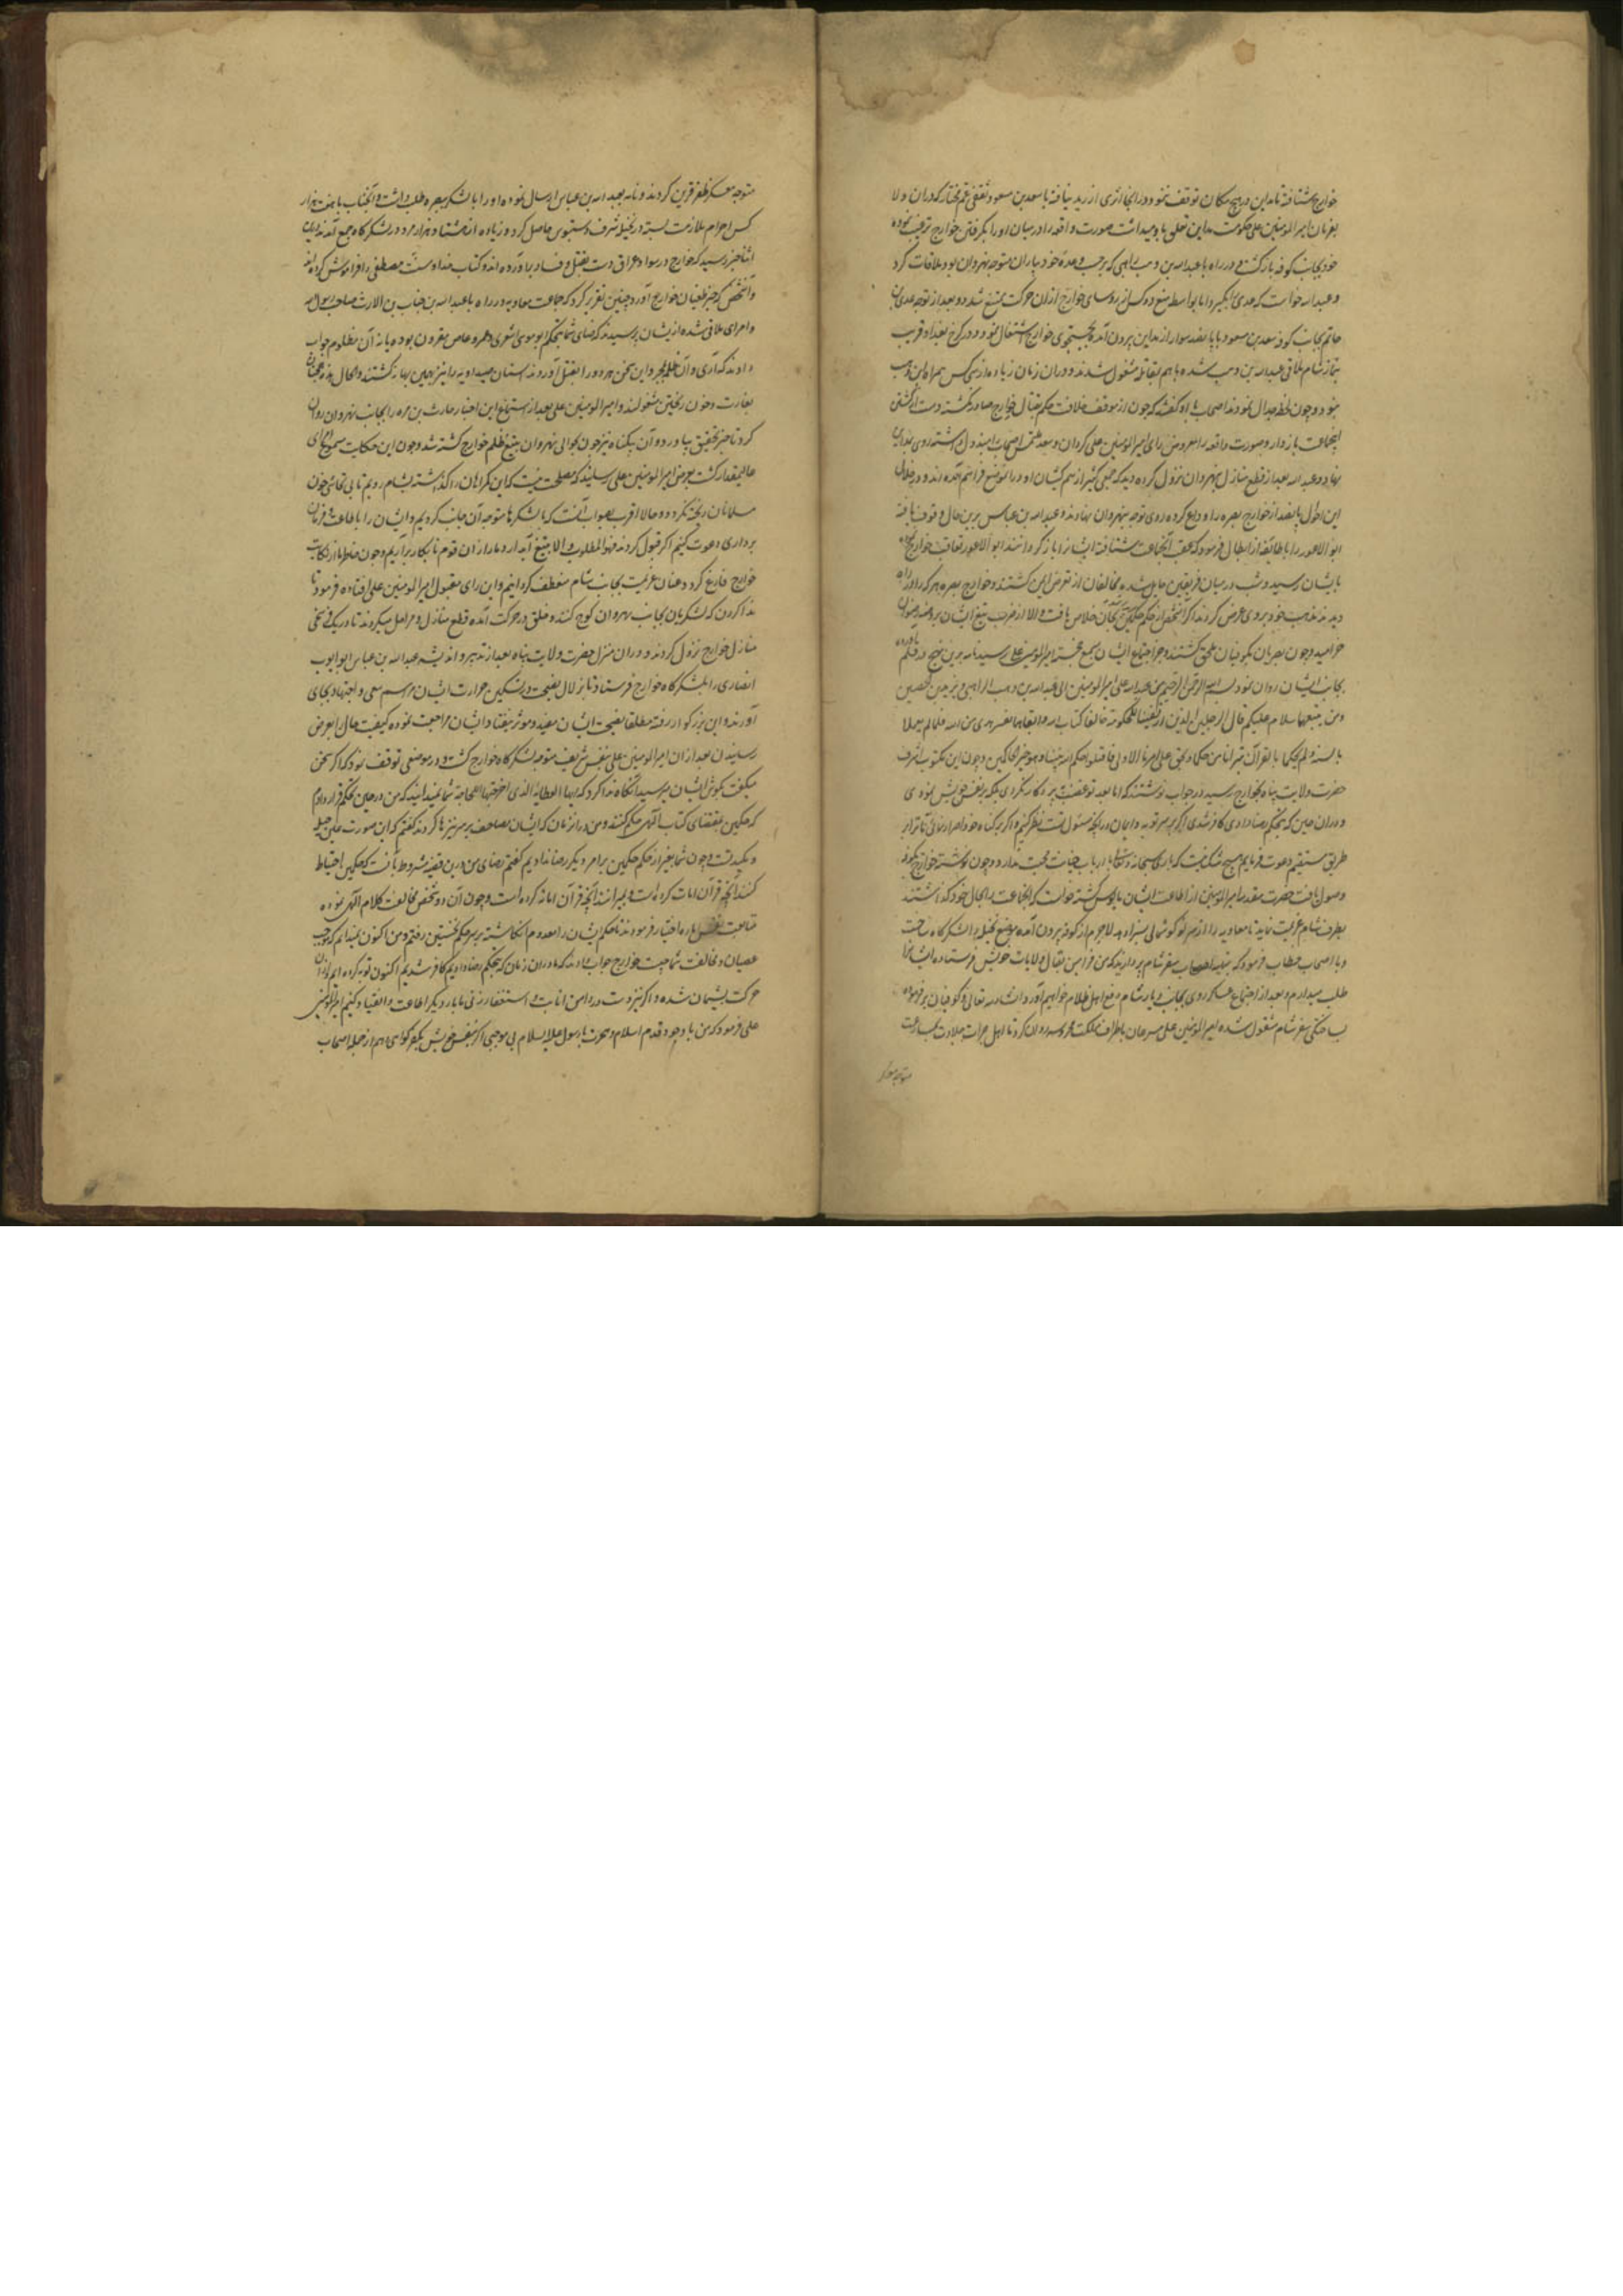 خوارج شتافته تا مداین در هیچ مکان توقف ننمود و در انجا اثری از زید نیافته با سعد بن مسعود ثقفی عم مختار که دران ولا
بفرمان امیرالمومنین علی حکومت مداین تعلق باو میداشت صورت واقعه را در میان اورد بگرفتن خوارج ترغیب نموده
خود بجانب کوفه بازگشت و در راه با عبدالله بن وهب راهبی که بر حسب وعده خود بیاران متوجه نهروان بود ملاقات کرد
و عبدالله خواست که عدی را بگیرد اما بواسطه منع دو کس از روسای خوارج ازان حرکت ممتنع شد و بعد از توجه عدی بن
حاتم بجانب کوفه سعد بن مسعود با پانصد سوار از مداین بیرون آمده بجستجوی خوارج اشتغال نمود و در کرخ بغداد قریب
بنماز شام ملاقی عبدالله بن وهب شده با هم بمقاتله مشغول شدند و دران زمان زیاده از سی کس همراه ابن وهب
نبود و چون لحظه جدال نمودند اصحاب با او گفتند که چون از موقف خلافت حکم بقتال خوارج صادر نگشته دست از کشتن
اینجماعت باز دار و صورت واقعه را معروض رای امیرالمومنین علی کردان و سعد ملتمس اصحاب را مبذول داشته روی بمداین
نهاد و عبدالله بعد از قطع منازل بنهروان نزول کرده دید که جمعی کثیر از هم کیشان او دران موضع فراهم آمده اند و در خلال
این احوال پانصد از خوارج بصره را وداع کرده روی توجه بنهروان نهادند و عبدالله بن عباس برین حال وقوف یافته
ابو الاسود را با طایفه از ابطال فرمود که عقب آنجماعت شتافته ایشانرا باز گردانند ابو الاسود تعاقب خوارج
بایشان رسید و شب در میان فریقین حایل شده مخالفان از تعرض ایمن گشتند و خوارج بصره هر که را در راه
دیدند مذهب خود بروی عرض کردند اگر آنشخص از حکم حکمین تبرا خلاص یافت والا از ضرب تیغ ایشان بروضه رضوان
خرامید و چون بصریان بکوفیان ملحق گشتند و خبر اجتماع ایشان بسمع امیرالمومنین علی رسید نامه برین نهج در قلم
بجانب ایشان روان نمود بسم الله الرحمن الرحیم من عبدالله علی امیرالمومنین الی عبدالله بن وهب الراهبی و یزید بن الحصین
ومن یتبعهما سلام علیکم فان الرجلین الذین ارتضینا للحکومة خالفا کتاب الله واتبعا هواهما بغیر هدی من الله فلما لم یعملا
بالسنة ولم یحکما بالقرآن تبرأنا من حکمهما ونحن علی امرنا الاول فاقبلوا
حضرت ولایت پناه بخوارج رسید در جواب نوشتند که اما بعد تو غضب برای پروردکار نکردی بلکه بر نفس خویش نمودی
و دران حین که بتحکیم رضا دادی کافر شدی اگر توبه و ایمان در آنچه مسئول تست نظر کنیم و اگر بر گناه خود اصرار نمائی ما ترا بر
طریق مستقیم دعوت فرماییم
وصول یافت حضرت امیرالمومنین از اطاعت ایشان مایوس گشته خواست که آنجماعت را بحال خود گذاشته
بطرف شام عزیمت نماید تا معاویه را گوشمالی بسزا دهد لاجرم از کوفه بیرون آمده موضع نخیله را لشکرگاه ساخت
و با اصحاب خطاب فرمود که بتهیه اسباب سفر شام پردازید که من فرامین بعمال ولایات خویش فرستاده ایشانرا
طلب میدارم و بعد از اجتماع عساکر روی بجانب دیار شام و دفع اهل ظلام خواهیم آورد انشاء الله تعالی و کوفیان بر
بساختگی سفر شام مشغول شده امیرالمومنین علی مسرعان باطراف مملکت محروسه روان کرد تا اهل جرات و جلادت بسرعت
متوجه معسکر
متوجه معسکر ظفر قرین کردند و نامه بعبدالله بن عباس ارسال نموده او را با لشکر بصره طلب داشت و آنجناب با هفت هزار
کس احرام ملازمت بسته در نخیله شرف دستبوس حاصل کرد و زیاده از هشتاد هزار مرد در لشکرگاه جمع آمدند در این
اثنا خبر رسید که خوارج در سواد عراق دست بقتل و فساد برآورده اند و کتاب خدا و سنت مصطفی را فراموش کرده اند
و آنشخص که خبر طغیان خوارج آورد چنین تقریر کرد که جماعت در راه با عبدالله بن خباب بن الارت صاحب رسول الله
و امرای ملاقی شده از ایشان پرسیدند که رضای شما بتحکیم ابو موسی اشعری و عمرو عاص مقرون بوده یا نه آن مظلوم جواب
دادند که آری و آن ظلمه بمجرد این سخن هر دو را بقتل آوردند را نیز بهمین بهانه کشتند و الحال
بغارت و خون ریختن مشغولند و امیرالمومنین علی بعد از استماع این اخبار حارث بن مره را بجانب نهروان روان
کرد تا خبر تحقیق بیاورد و آن بیگناه نیز چون بحوالی نهروان رسید بتیغ ظلم خوارج کشته شد و چون این حکایت مسموع
عالیمقدار گشت بعرض امیرالمومنین علی رسانیدند که مصلحت نیست که این گمراهان را گذاشته بشام رویم تا بی تحاشی خون
مسلمانان ریخته گردد و حالا اقرب بصواب آنست که با لشکرها متوجه آن جانب کردیم و ایشان را باطاعت و فرمان
برداری دعوت کنیم اگر قبول کردند فهو المطلوب و الا بتیغ آبدار دمار ازان قوم نابکار برآریم و چون خاطر ما از نکایت
خوارج فارغ گردد عنان عزیمت بجانب شام منعطف گردانیم و این رای مقبول امیرالمومنین علی افتاده فرمود تا
ندا کردند که لشکریان بجانب نهروان کوچ کنند و خلق در حرکت آمده قطع منازل و مراحل میکردند تا در یکفرسخی
منازل خوارج نزول کردند و دران منزل حضرت ولایت پناه بعد از تدبیر و اندیشه عبدالله بن عباس و ابو ایوب
انصاری را بلشکرگاه خوارج فرستاد تا بزلال نصیحت در تسکین حرارت ایشان مراسم سعی و اجتهاد بجای
آورند و این بزرگوار رفته مطلقا نصیحت ایشان مفید و موثر نیفتاد و ایشان مراجعت نموده کیفیت حال را بعرض
رسانیدند بعد ازان امیرالمومنین علی بنفس شریف متوجه لشکرگاه خوارج گشت و در موضعی توقف نمود که اگر سخن
میگفت بگوش ایشان میرسید آنگاه ندا کرد که ایها الطایفة الذی اخرجتها اللجاجة شما نمیدانید که من در حین تحکیم قرار دادم
که حکمین بمقتضای کتاب الهی حکم کنند و من دران زمان که ایشان مصاحف بر سر نیزها کردند گفتم که این صورت عین حیله
و مکیدت و چون شما بغیر از حکم حکمین بر امر دیگر رضا ندادیم گفتم رضای من درین قضیه مشروط بآنست که حکمین احتیاط
کنند آنچه قرآن امات کرده است بمیرانند و آنچه قرآن احیا کرده است و چون آن دو شخص مخالفت کلام الهی نموده
متابعت نفس اماره اختیار فرمودند ما حکم ایشان را معدوم انگاشته بر سر حکم نخستین رفتیم و من اکنون نمیدانم که موجب
عصیان و مخالفت شما چیست خوارج جواب دادند که ما دران زمان که بتحکیم رضا دادیم کافر شدیم اکنون توبه کرده ایم و ازان
حرکت پشیمان شده و اگر نیز دست در دامن انابت و استغفار زنی ما بار دیگر اطاعت و انقیاد کنیم امیرالمومنین
علی فرمود که من با وجود قدم اسلام و هجرت با رسول علیه السلام بی موجبی اگر بنفس خویش بکفر گواهی دهم از جمله اصحاب